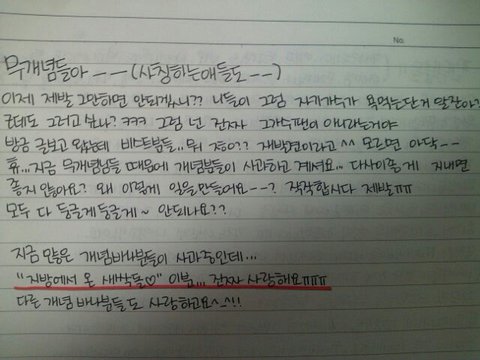 No.
무개념들아 --- (사칭하는애들도 --)
이제 제발 그만하면 안되겠니?? 니들이 그럼 자기가수가 욕먹는단거 알잖아?
근데도 그러고싶냐? ㅋㅋㅋ 그럼 넌 진짜 그가수팬이 아니라는거야
방금 글보고 왔는데 비스트분들.. 뭐 재범이라고 ^^ 모르면 아닥--
휴....지금 무개념님들 때문에 개념분들이 사과하고 계셔요... 다사이좋게 지내면
좋지 않아요? 왜 이렇게 일을만들어요--? 작작합시다 제발ㅠㅠ
모두 다 둥글게둥글게~ 안되나요??
지금 많은 개념바나분들이 사과중인데...
"지방에서 온 새싹들♡" 이분... 진짜 사랑해요ㅠㅠㅠ
다른 개념 바나분들도 사랑하고요^-^!!